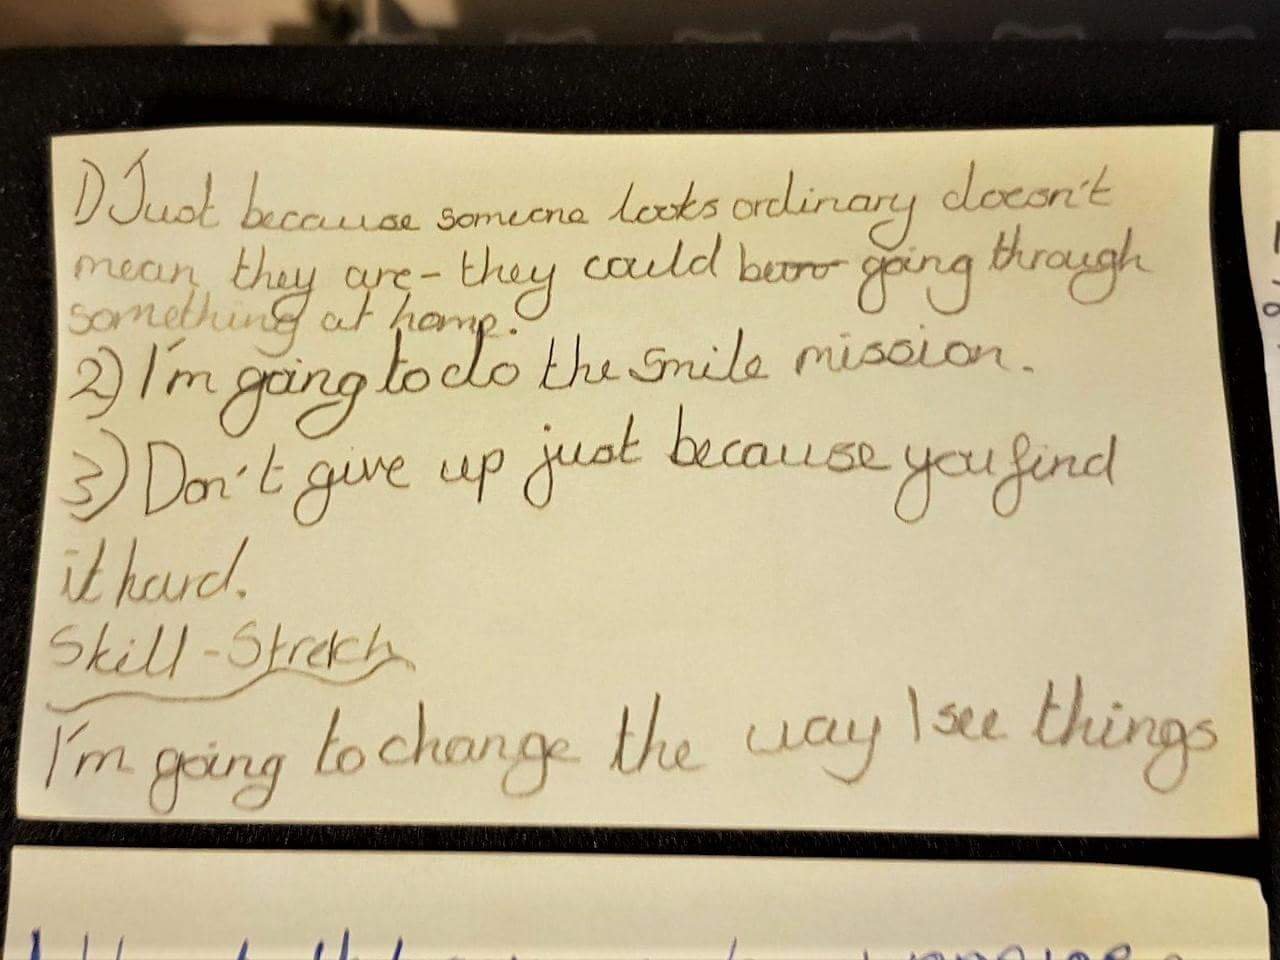 1) Just because someone looks ordinary doesn't
mean they are - they could going through
something at home.
2) I'm going to do the smile mission.
3) Don't give up just because you find
it hard.
Skill - Stretch
I'm going to change the way I see things